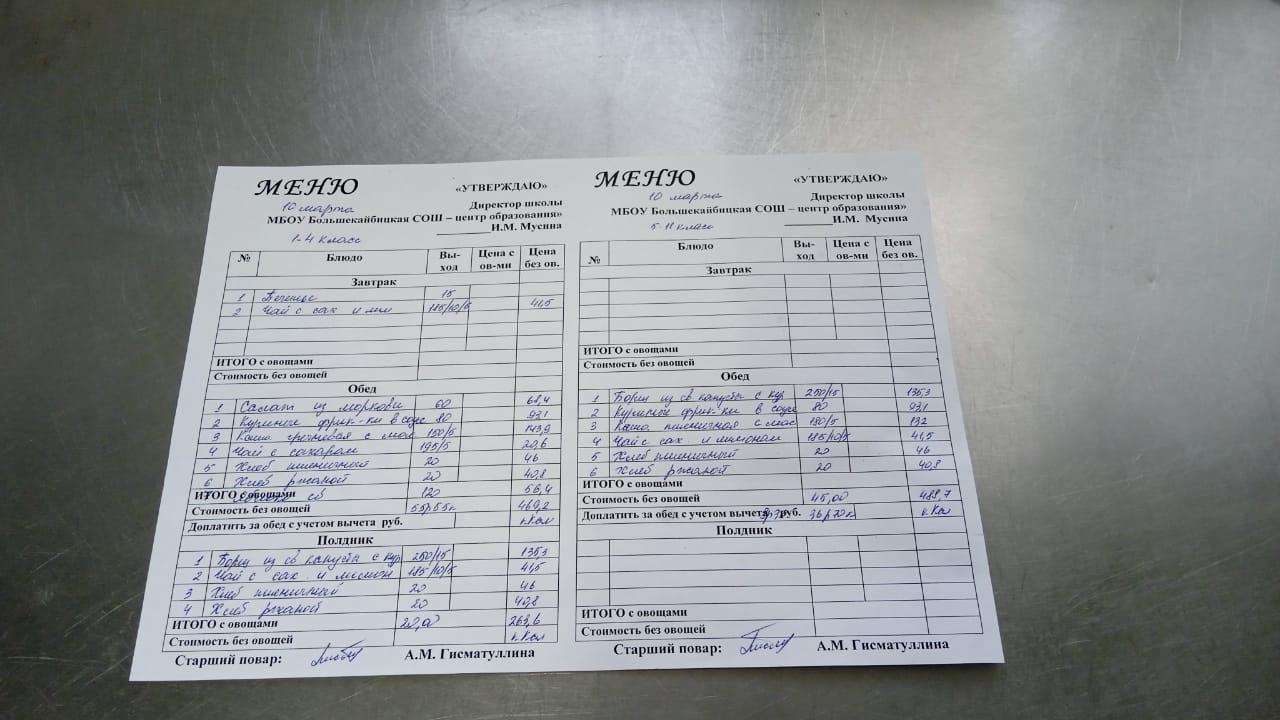 МЕНЮ
«УТВЕРЖДАЮ»
10 марта
Директор школы
МБОУ Большекайбицкая СОШ – центр образования»
И.М. Мусина
1-4 класс
№ Блюдо Вы-ход Цена с ов-ми Цена без ов.
Завтрак
1 Печенье 15
2 Чай с сах и лим 185/10/5 41,5
ИТОГО с овощами
Стоимость без овощей
Обед
1 Салат из моркови 60 68,4
2 Куриные фрик-ки в соусе 80 93,1
3 Каша гречневая с мас 150/5 143,9
4 Чай с сахаром 195/5 20,6
5 Хлеб пшеничный 20 46
6 Хлеб ржаной 20 40,8
7 св 120 56,4
ИТОГО с овощами
Стоимость без овощей 55р55к 469,2
Доплатить за обед с учетом вычета руб. к.кал
Полдник
1 Борщ из св капусты с кур 250/15 135,3
2 Чай с сах и лимон 185/10/5 41,5
3 Хлеб пшеничный 20 46
4 Хлеб ржаной 20 40,8
ИТОГО с овощами 20,00 263,6
Стоимость без овощей к.кал
Старший повар: А.М. Гисматуллина
МЕНЮ
«УТВЕРЖДАЮ»
10 марта
Директор школы
МБОУ Большекайбицкая СОШ – центр образования»
И.М. Мусина
5-11 класс
№ Блюдо Вы-ход Цена с ов-ми Цена без ов.
Завтрак
ИТОГО с овощами
Стоимость без овощей
Обед
1 Борщ из св капусты с кур 250/15 135,3
2 Куриные фрик-ки в соусе 80 93,1
3 Каша пшеничная с мас 180/5 132
4 Чай с сах. и лимоном 185/10/5 41,5
5 Хлеб пшеничный 20 46
6 Хлеб ржаной 20 40,8
ИТОГО с овощами
Стоимость без овощей 45,00 488,7
Доплатить за обед с учетом вычета руб. 36р20к к.кал
Полдник
ИТОГО с овощами
Стоимость без овощей
Старший повар: А.М. Гисматуллина